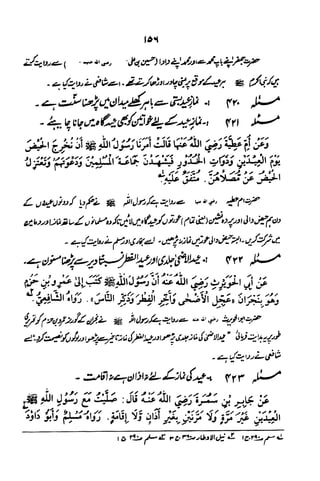 ۱۵۶
حضرت جعفر اپنے باپ محمد سے اور محمد اپنے دادا (حسین بن علی رضی اللہ عنہ) سے روایت کرتے
ہیں کہ نبی اکرم ﷺ ہر عید کے موقع پر یمنی چادر اوڑھا کرتے تھے۔ اسے شافعی نے روایت کیا ہے۔
مسئلہ ۴۲۰ ۱۔ نماز عید بستی سے باہر کھلے میدان میں پڑھنا سنت ہے۔
مسئلہ ۴۲۱ ۱۔ نماز عید کے لئے خواتین کو بھی عید گاہ میں جانا چاہیئے۔
وَعَنْ أُمِّ عَطِيَّةَ رَضِيَ اللهُ عَنْهَا قَالَتْ أَمَرَنَا رَسُوْلُ اللهِ ﷺ أَنْ نُخْرِجَ الْحُيَّضَ
يَوْمَ الْعِيْدَيْنِ وَذَوَاتِ الْخُدُوْرِ فَيَشْهَدْنَ جَمَاعَةَ الْمُسْلِمِيْنَ وَدَعْوَتَهُمْ وَتَعْتَزِلُ
الْحُيَّضُ عَنْ مُصَلَّاهُنَّ. مُتَّفَقٌ عَلَيْهِ
حضرت ام عطیہ رضی اللہ عنہا سے روایت ہے کہ رسول اللہ ﷺ نے حکم دیا کہ دونوں عیدوں کے
دن ہم حیض والی اور پردہ نشین (یعنی تمام) عورتوں کو عید گاہ میں لائیں تاکہ وہ مسلمانوں کے ساتھ نماز اور دعا میں
شرکت کریں، البتہ حیض والی عورتیں نماز نہ پڑھیں۔ اسے بخاری اور مسلم نے روایت کیا ہے۔
مسئلہ ۴۲۲ ۱۔ عید الاضحٰی جلدی اور عید الفطر نسبتاً دیر سے پڑھنا مسنون ہے۔
عَنْ أَبِي الْحُوَيْرِثِ رَضِيَ اللهُ عَنْهُ أَنَّ رَسُوْلَ اللهِ ﷺ كَتَبَ إِلَى عَمْرِو بْنِ حَزْمٍ
وَهُوَ بِنَجْرَانَ «عَجِّلِ الْأَضْحَى وَأَخِّرِ الْفِطْرَ وَذَكِّرِ النَّاسَ». رَوَاهُ الشَّافِعِيُّ
حضرت ابو الحویرث رضی اللہ عنہ سے روایت ہے کہ رسول اللہ ﷺ نے نجران کے گورنر عمرو بن حزم کو تحریری
طور پر یہ ہدایت فرمائی "عید الاضحٰی کی نماز جلدی پڑھو اور عید الفطر کی نماز دیر سے پڑھو اور لوگوں کو نصیحت کرو" اسے
شافعی نے روایت کیا ہے۔
مسئلہ ۴۲۳ ۱۔ عید کی نماز کے لئے نہ اذان ہے نہ اقامت۔
عَنْ جَابِرِ بْنِ سَمُرَةَ رَضِيَ اللهُ عَنْهُ قَالَ: صَلَّيْتُ مَعَ رَسُوْلِ اللهِ ﷺ
الْعِيْدَيْنِ غَيْرَ مَرَّةٍ وَلَا مَرَّتَيْنِ بِغَيْرِ أَذَانٍ وَلَا إِقَامَةٍ. رَوَاهُ مُسْلِمٌ وَأَبُوْ دَاوُدَ